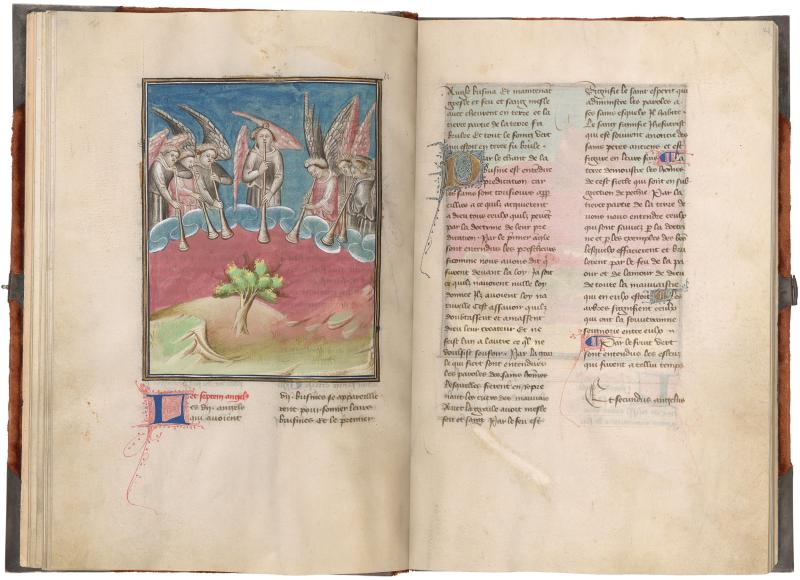 Et septem angeli
Les vii angels
qui avoient
vii busines se appareille
rent pour sonner leurs
busines Et le premier
Angle busina Et maintenāt
gresle et feu et sang mesle
avec cheurent en terre et la
tierce partie de la terre fu
brulee Et tout le foing vert
qui estoit en terre fu brule
Par le chant de la
busine est entendue
predication car
les sains sont tousiours app
eillies a ce quilz acquierent
a dieu tous ceulx quilz pevēt
par la doctrine de leur pre
dication Par le premier angle
sont entendus les prescheurs
sicomme nous avons dit q̄
furent devant la loy Ja soit
ce quilz navoient nulle loy
donnee Ilz avoient loy na
turelle Cest assavoir quilz
doubtassent et amassent
dieu leur createur Et ne
feist lun a lautre ce ql ne
voulsist souffrir Par la gres
le qui fiert sont entendues
les paroles des sains
lesquelles fierent en repre
nant les cuers des mauvais
Avec la gresle avoit mesle
feu et sang Par le feu est
Signifie le saint esperit qui
administre les paroles a
ses sains esquelz il habite
Le sanc signifie Jhesucrist
qui est souvent anoncie des
sains peres anciens et est
figure en leurs fais La
terre demonstre les hommes
de cest siecle qui sont en sub
gection de pechie Par la
tierce partie de la terre de
vons nous entendre ceulx
qui sont sauvez p la doctri
ne et p les exemples des bōs
lesquelz efflacierent et bru
lerent par le feu de la pa
our et de lamour de dieu
de toute la mauvaistie
qui en eulx estoit Les
arbres signifient ceulx
qui ont la souveraine
seignorie entre eulx
Par le foing vert
sont entendus les esleus
qui furent a cellui temps
Et secundus angelus